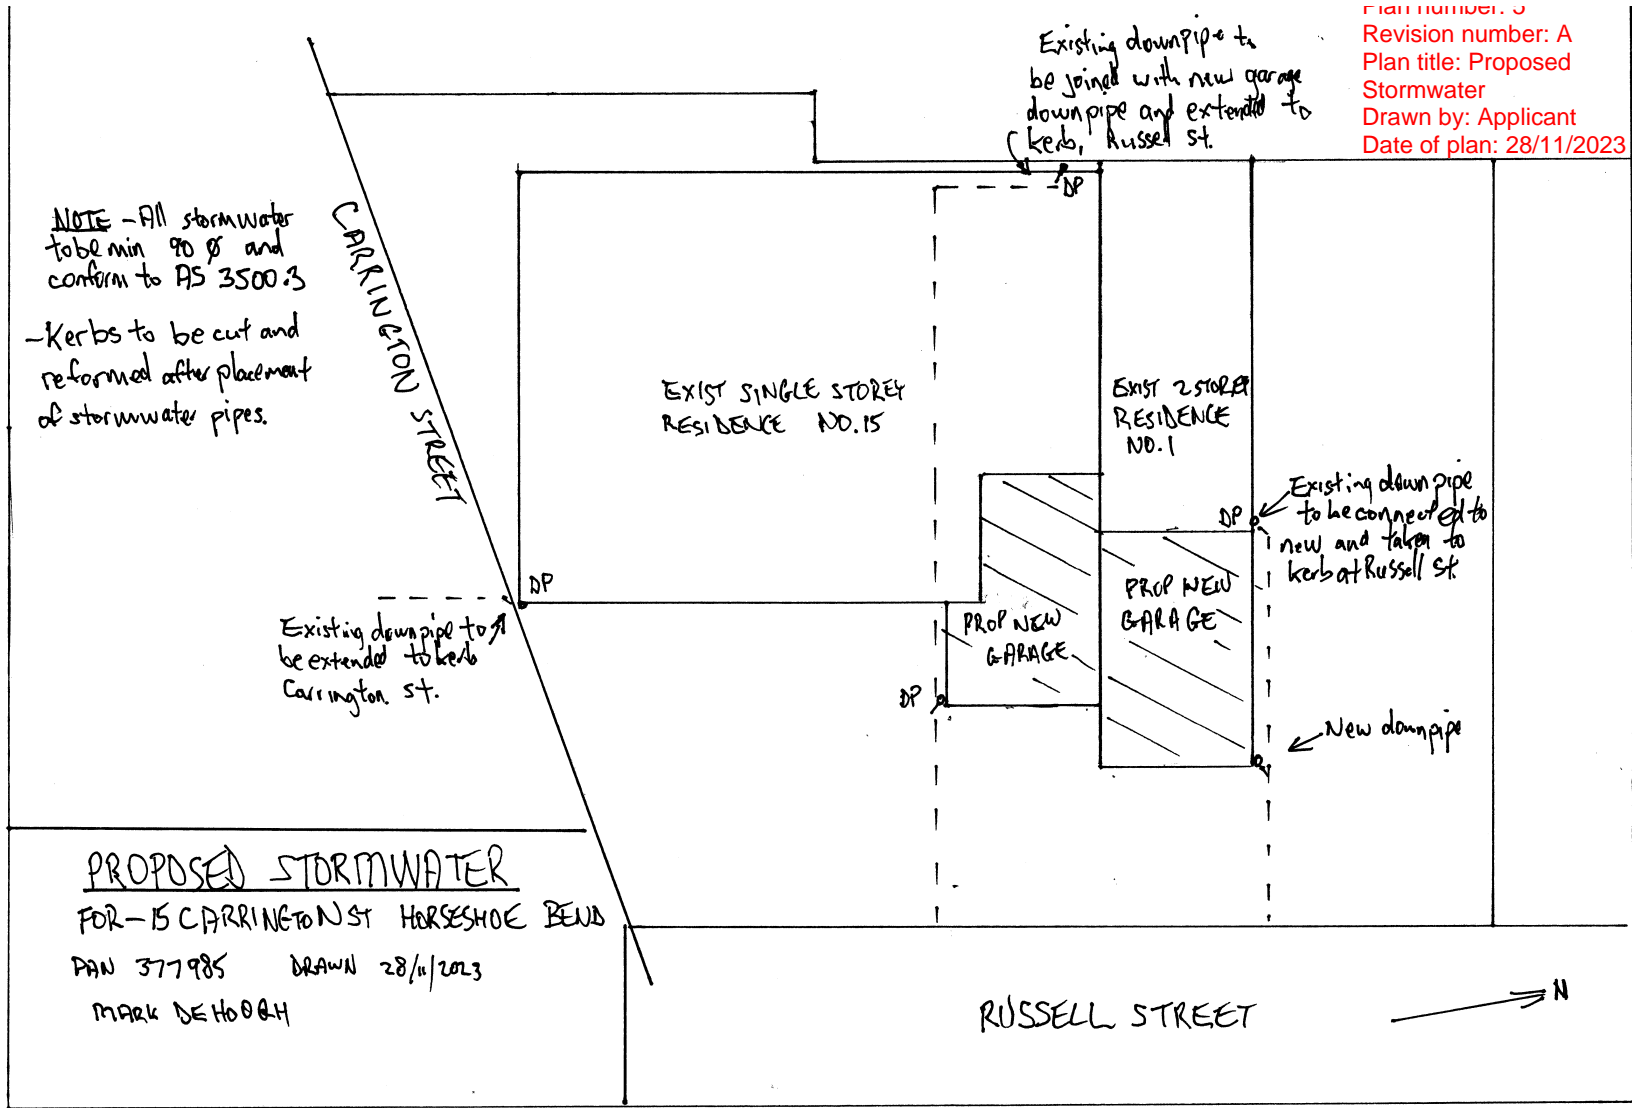 Plan number: 5
Revision number: A
Plan title: Proposed
Stormwater
Drawn by: Applicant
Date of plan: 28/11/2023
Existing downpipe to
be joined with new garage
downpipe and extended to
kerb, Russell St.
DP
NOTE - All stormwater
to be min 90 Ø and
conform to AS 3500.3
- Kerbs to be cut and
reformed after placement
of stormwater pipes.
CARRINGTON STREET
EXIST SINGLE STOREY
RESIDENCE NO.15
EXIST 2 STOREY
RESIDENCE
NO.1
Existing downpipe
to be connected to
new and taken to
kerb at Russell St.
DP
DP
Existing downpipe to
be extended to kerb
Carrington. St.
PROP NEW
GARAGE
PROP NEW
GARAGE
DP
New downpipe
PROPOSED STORMWATER
FOR - 15 CARRINGTON ST HORSESHOE BEND
PAN 377985 DRAWN 28/11/2023
MARK DEHOOGH
RUSSELL STREET
N